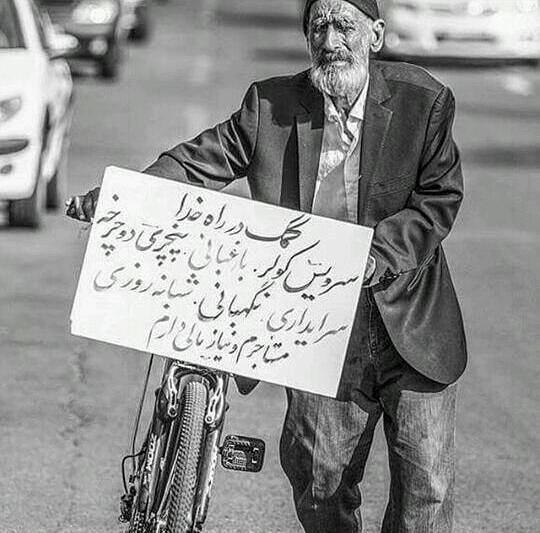 کمک در راه خدا
سرویس کولر. باغبانی. پنچری دوچرخه
سرایداری. نگهبانی. شبانه روزی
مستاجرم و نیاز مالی دارم